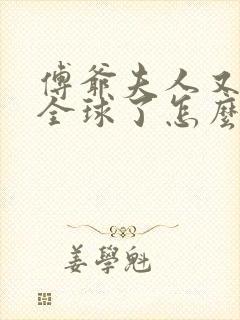 傅爺夫人又
全球了怎麼
姜學魁